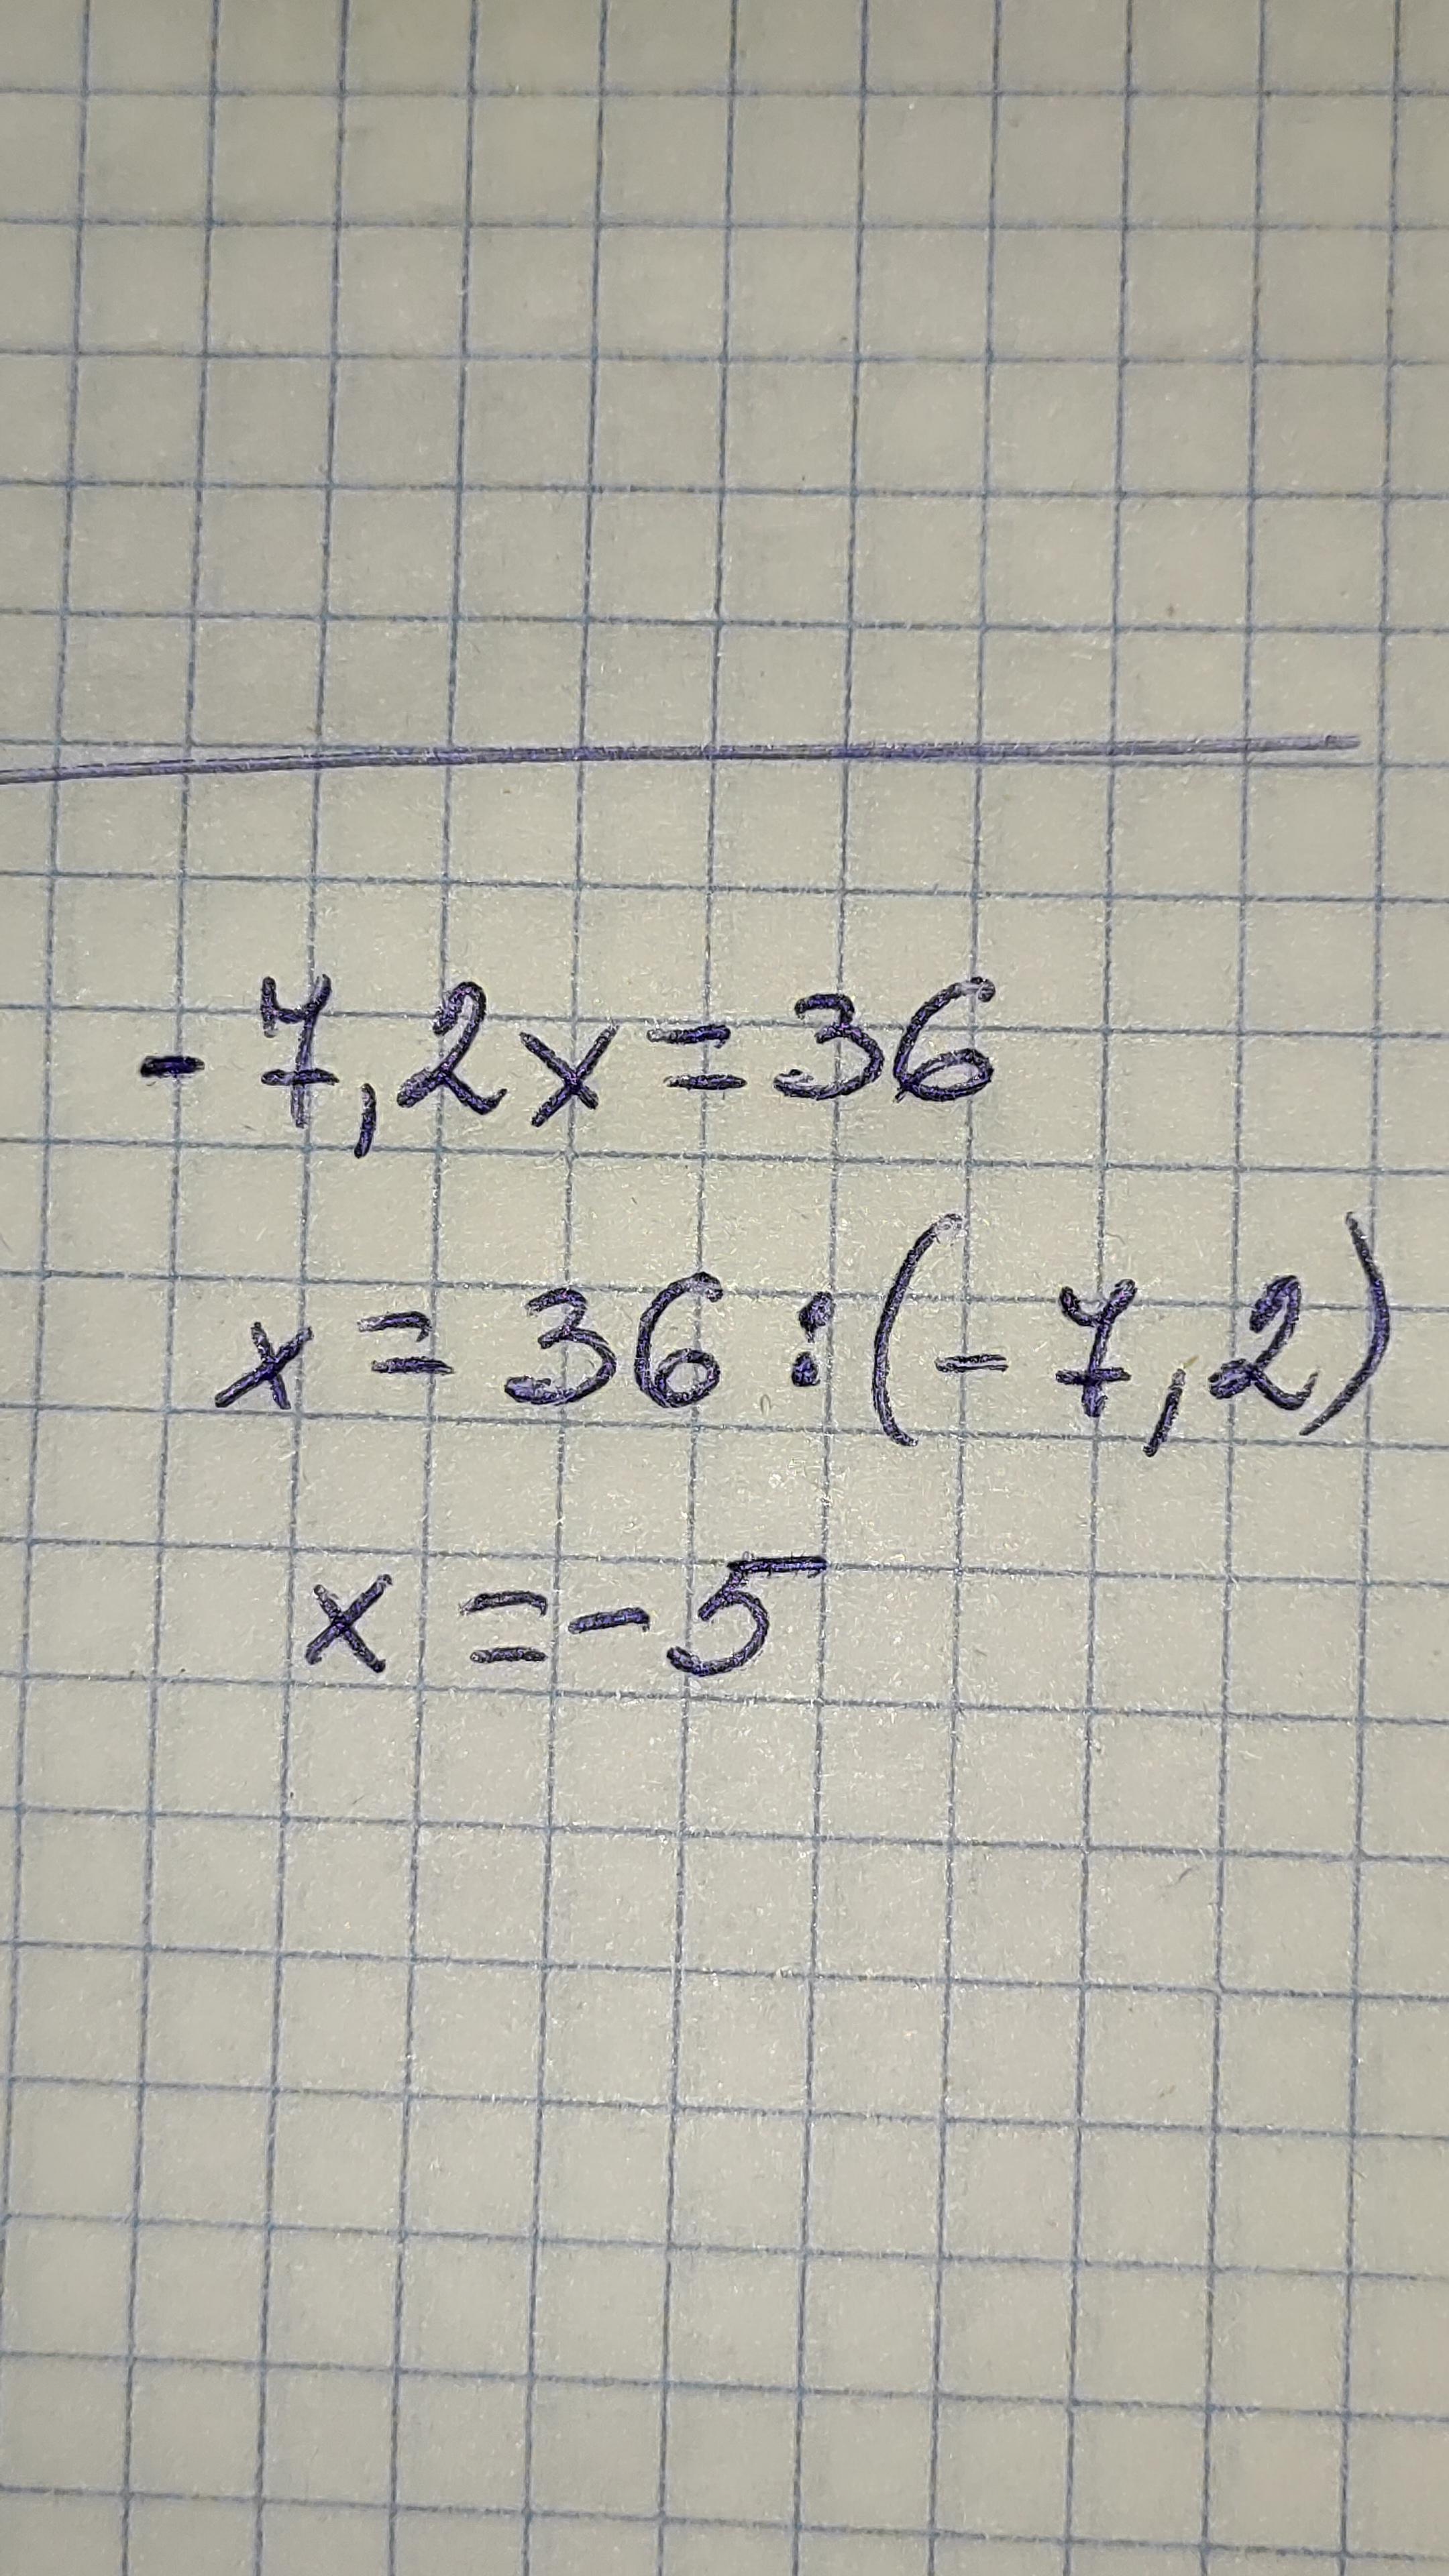 -7,2x=36
x = 36 : (-7,2)
x =-5